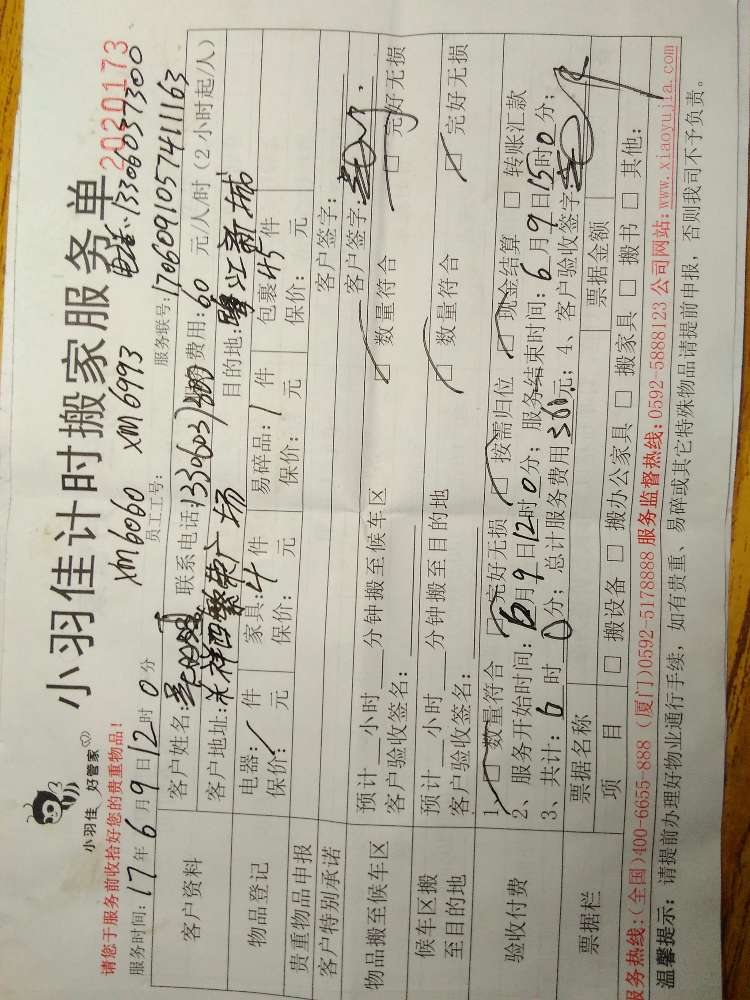 小羽佳 好管家
小羽佳计时搬家服务单
2020173
请您于服务前收拾好您的贵重物品!
XM6060 XM6993 电话:13306037300
服务时间:17年6月9日12时0分 员工工号: 服务联号:1706091057411163
客户资料
客户姓名: 联系电话:13306037300 费用:60元/人/时(2小时起/人)
客户地址:禾祥西繁荣广场 目的地:鹭江新城
物品登记
电器:1件 家具:4件 易碎品:1件 包裹45件
保价: 元 保价: 元 保价: 元 保价: 元
贵重物品申报
客户特别承诺 客户签字:
物品搬至候车区
预计__小时____分钟搬至候车区 客户签字:
客户验收签名: □ 数量符合 □ 完好无损
候车区搬至目的地
预计__小时____分钟搬至目的地
客户验收签名: □ 数量符合 □ 完好无损
验收付费
1、□ 数量符合 □ 完好无损 □ 按需归位 □ 现金结算 □ 转账汇款
2、服务开始时间:6月9日12时0分;服务结束时间:6月9日15时0分;
3、共计:6时0分;总计服务费用360元;4、客户验收签字:
票据栏
票据名称 票据金额
项目 □ 搬设备 □ 搬办公家具 □ 搬家具 □ 搬书 □ 其他:
服务热线:(全国)400-6655-888 (厦门)0592-5178888 服务监督热线:0592-5888123 公司网站:www.xiaoyujia.com
温馨提示:请提前办理好物业通行手续,如有贵重、易碎或其它特殊物品请提前申报,否则我司不予负责。